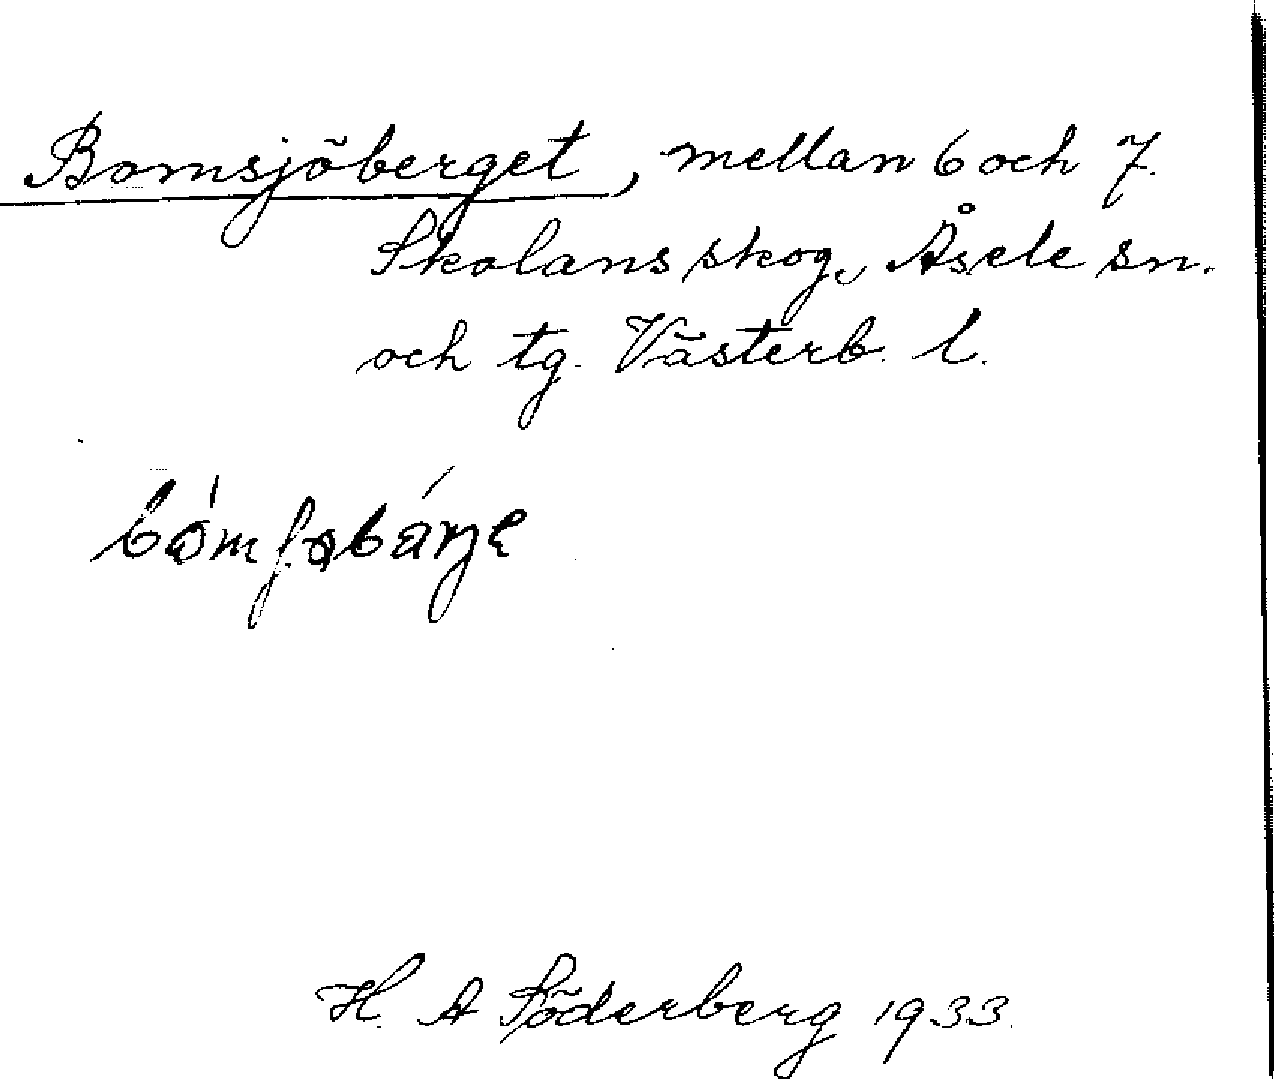 Bomsjöberget, mellan 6 och 7.
Skolans skog, Åsele sn.
och tg. Västerb. l.
H. A Söderberg 1933.